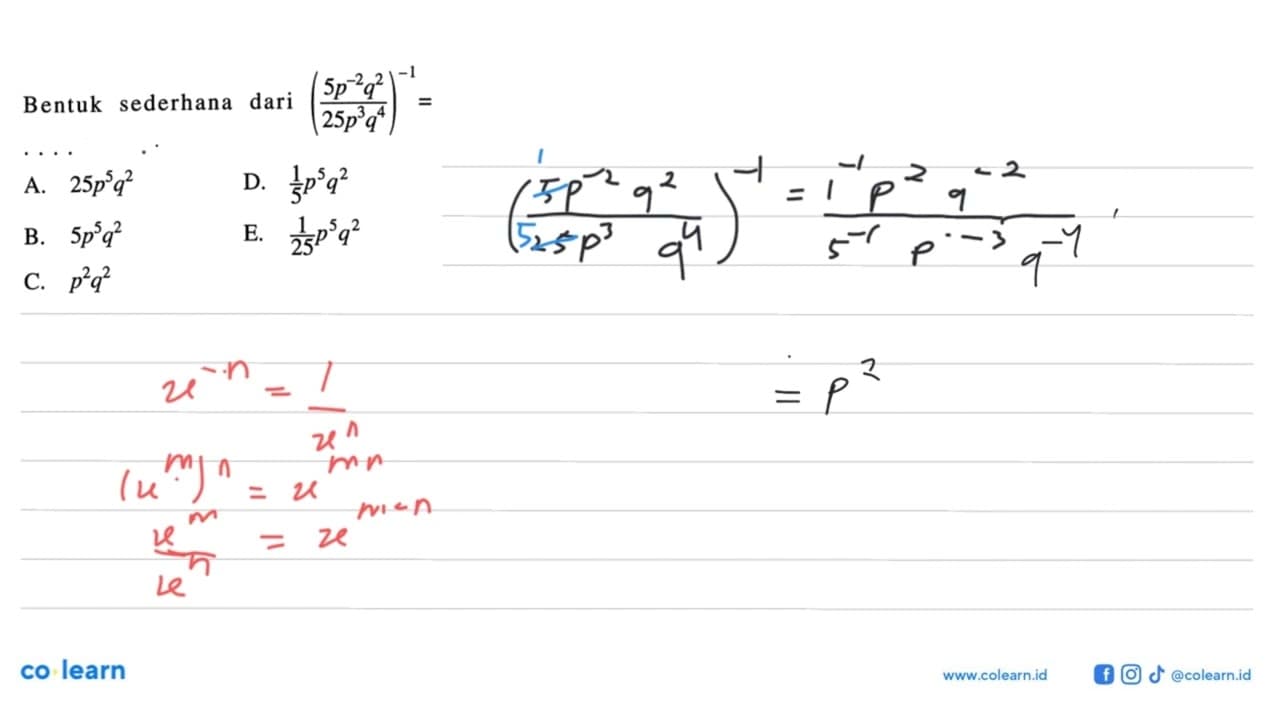 Bentuk sederhana dari (5p⁻²q² / 25p³q⁴)⁻¹ =
. . . .
A. 25p⁵q² D. 1/5 p⁵q²
B. 5p⁵q² E. 1/25 p⁵q²
C. p²q²
(5p⁻² q² / 25p³ q⁴)⁻¹ = 1⁻¹ p² q⁻² / 5⁻¹ p⁻³ q⁻⁴
1
5
= p²
x⁻ⁿ = 1 / xⁿ
(xᵐ)ⁿ = xᵐⁿ
xᵐ / xⁿ = xᵐ⁻ⁿ
co learn
www.colearn.id @colearn.id